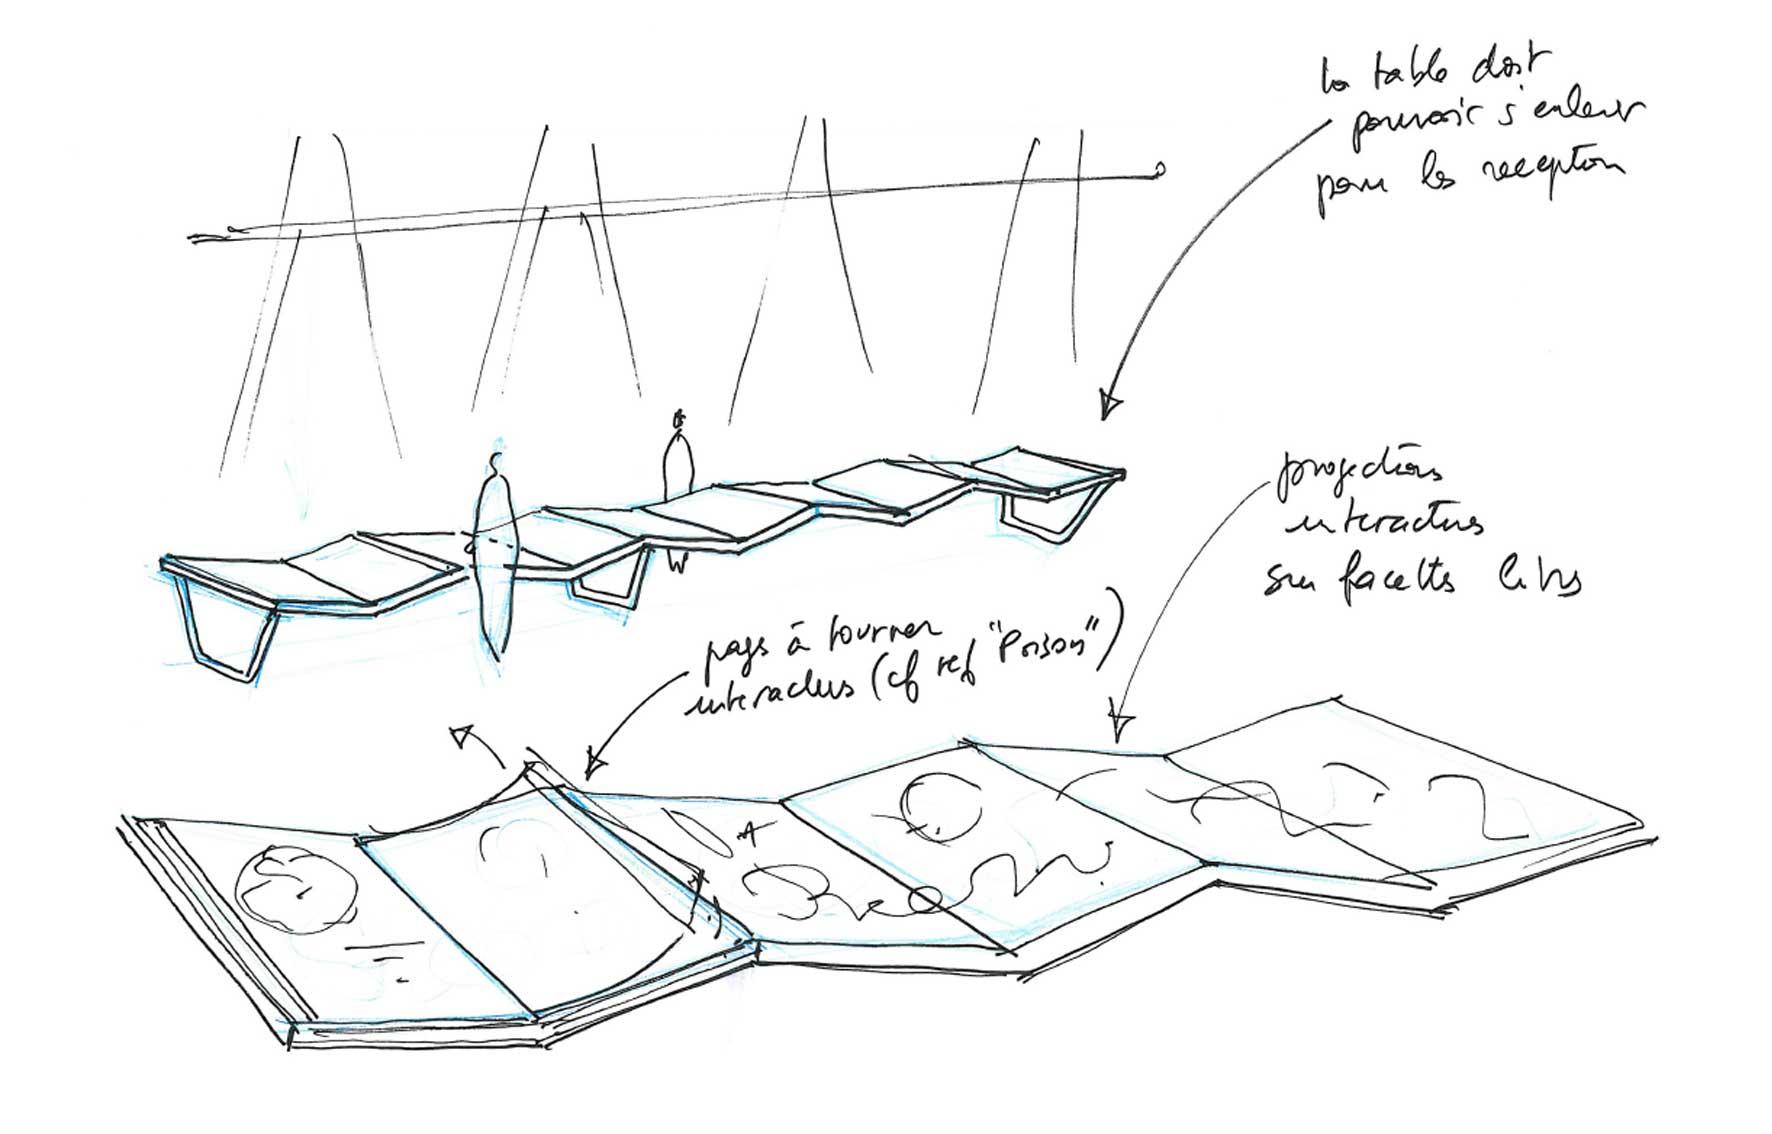 la table doit
pouvoir s'enlever
pour les reception
projections
interactives
sur facettes livres
pages à tourner
interactives (cf ref "Poison")